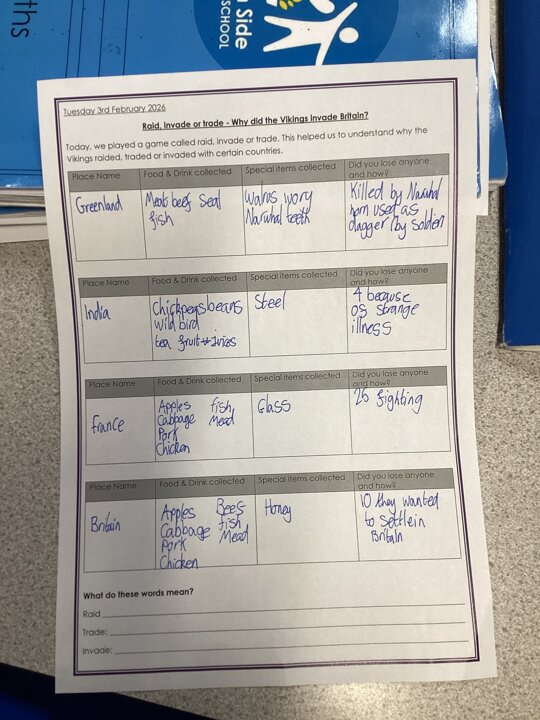 ths
Side
SCHOOL
Tuesday 3rd February 2026
Raid, invade or trade - Why did the Vikings invade Britain?
Today, we played a game called raid, invade or trade. This helped us to understand why the
Vikings raided, traded or invaded with certain countries.
Place Name
Food & Drink collected
Special items collected
Did you lose anyone
and how?
Greenland
Meat beef Seal
fish
Walrus ivory
Narwhal teeth
Killed by Narwhal
horn used as
dagger by
Place Name
Food & Drink collected
Special items collected
Did you lose anyone
and how?
India
Chickpeas beans
Wild bird
tea fruit juices
Steel
4 because
of strange
illness
Place Name
Food & Drink collected
Special items collected
Did you lose anyone
and how?
France
Apples fish
Cabbage Mead
Pork
Chicken
Glass
26 fighting
Place Name
Food & Drink collected
Special items collected
Did you lose anyone
and how?
Britain
Apples Beef
Cabbage fish
Pork Mead
Chicken
Honey
10 they wanted
to settle in
Britain
What do these words mean?
Raid
Trade:
Invade: